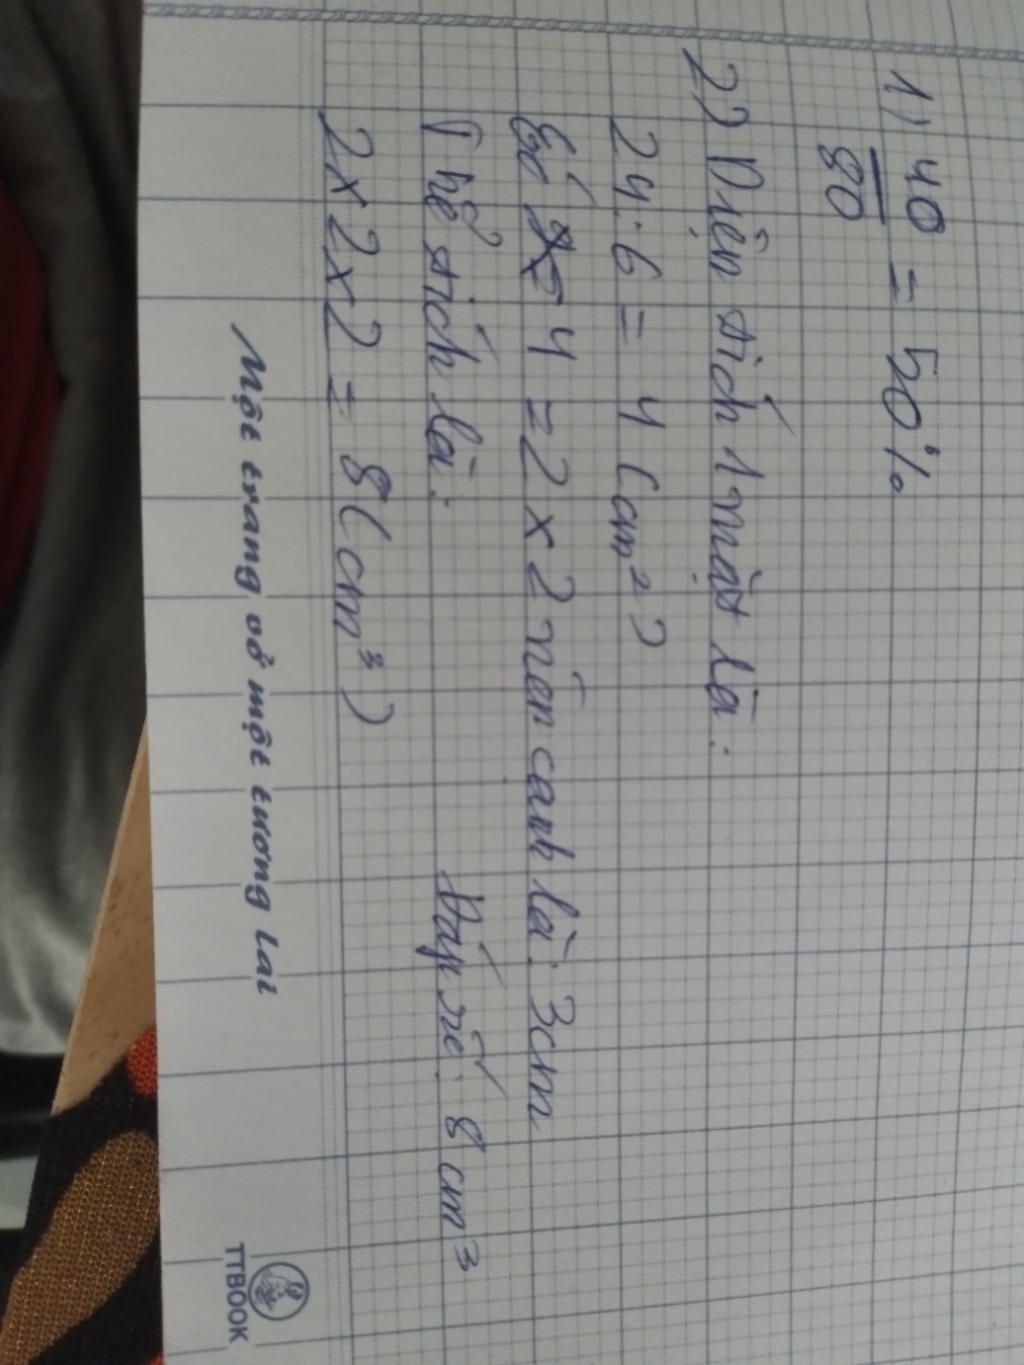 1) 40/80 = 50%
2) Diện tích 1 mặt là:
24:6 = 4 (cm²)
Có 4 = 2 x 2 nên cạnh là: 3cm
Thể tích là:
2x2x2 = 8(cm³)
Đáp số: 8 cm³
Một trang vở một tương lai
TTBOOK